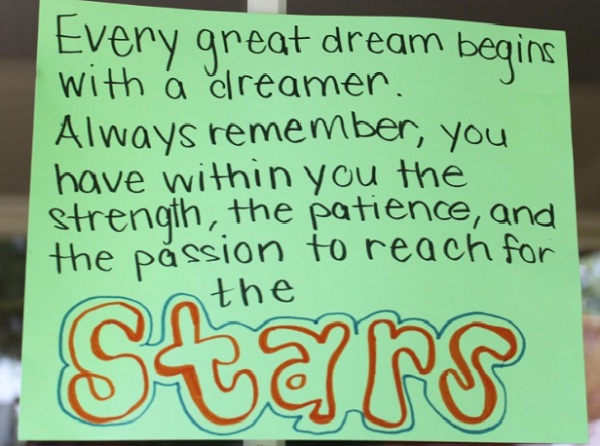 Every great dream begins
with a dreamer.
Always remember, you
have within you the
strength, the patience, and
the passion to reach for
the
Stars